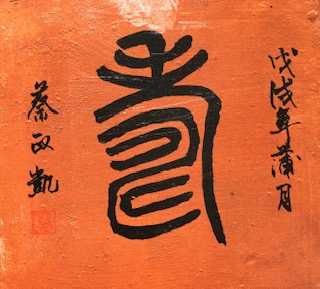 戊戌年蒲月
壽
蔡政凱